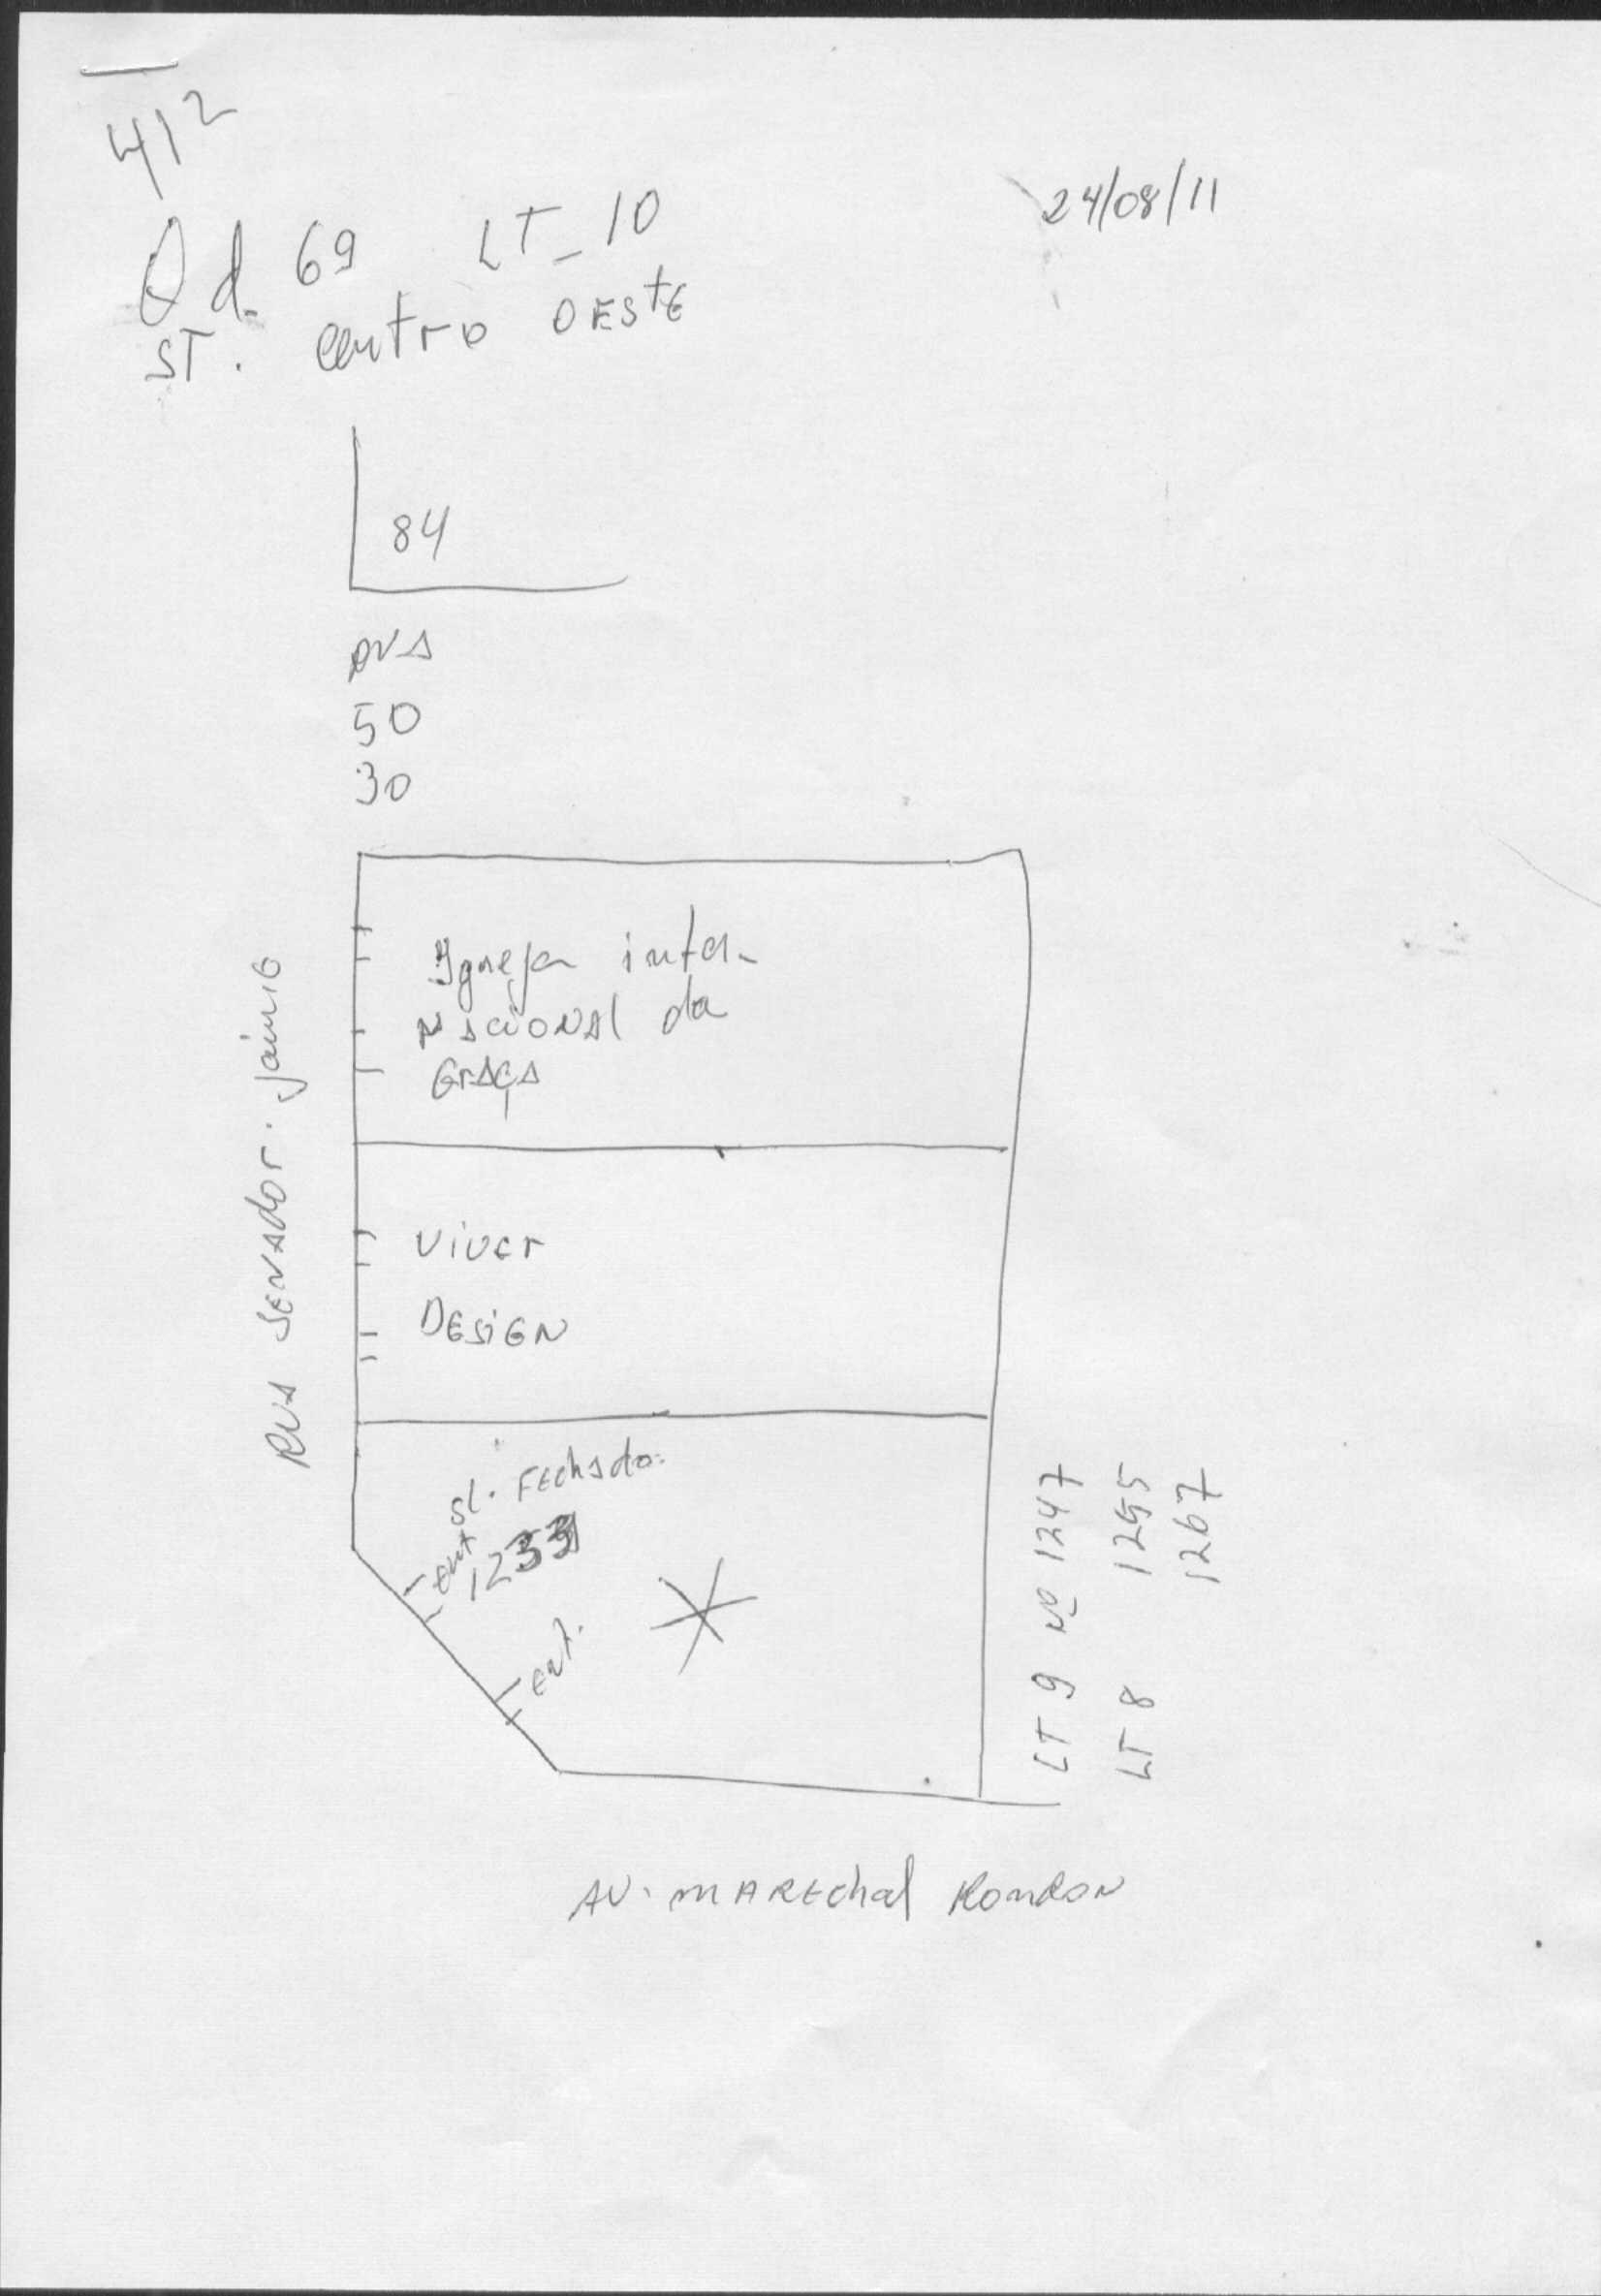 412
24/08/11
Qd. 69 LT_10
ST. Centro OESTE
84
RUA
50
30
Igreja inter-
nacional da
Graça
RUA SENADOR. Jaime
Viver
DESIGN
sl. FEchado.
ent
ent.
LT 9 Nº 1247
LT 8 1255
1267
AV. MAREchal RONDON